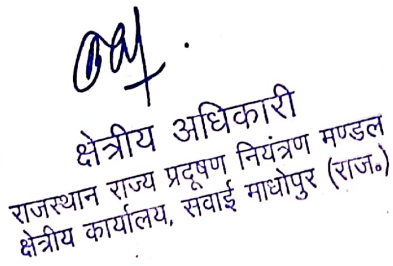 क्षेत्रीय अधिकारी
राजस्थान राज्य प्रदूषण नियंत्रण मण्डल
क्षेत्रीय कार्यालय, सवाई माधोपुर (राज०)